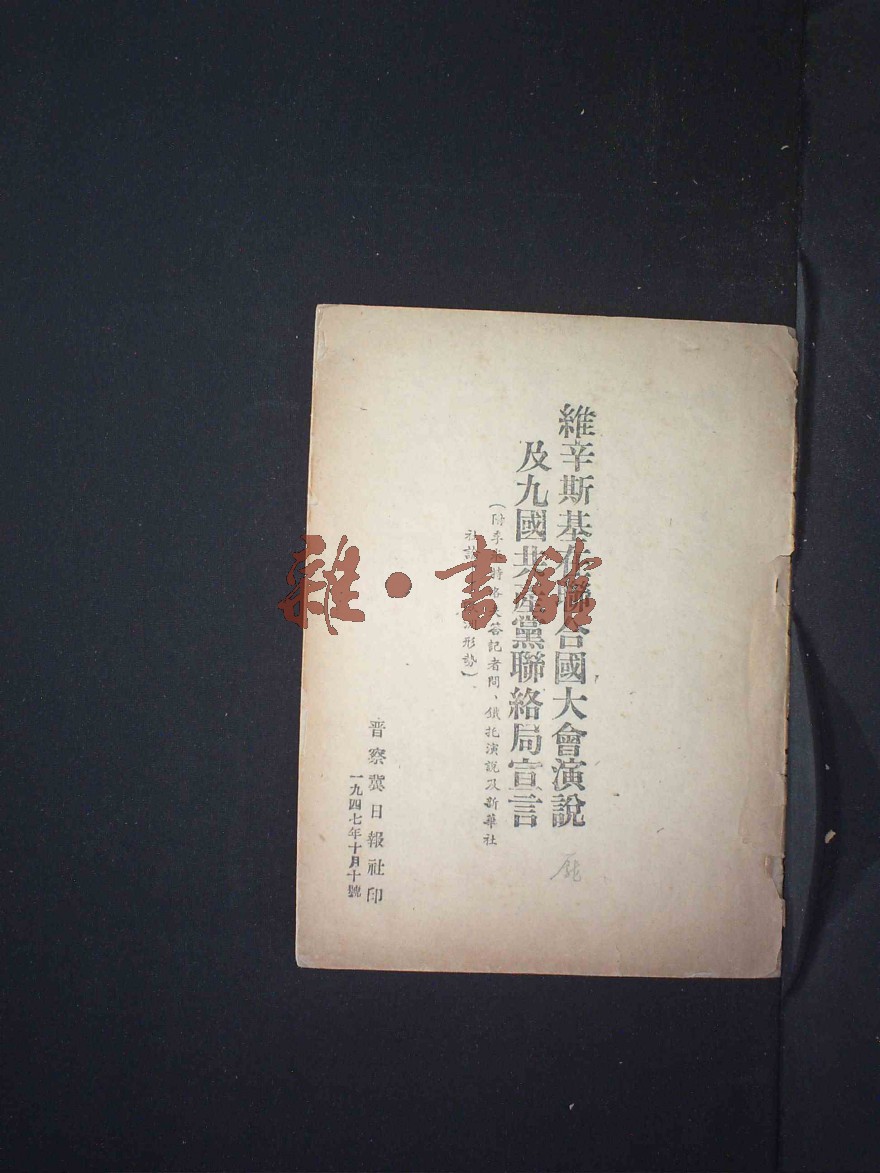 維辛斯基在聯合國大會演說
及九國共產黨聯絡局宣言
(附季米特洛夫答記者問、鐵托演說及新華社
社論 形勢)
晋察冀日報社印
一九四七年十月十號
雜·書館